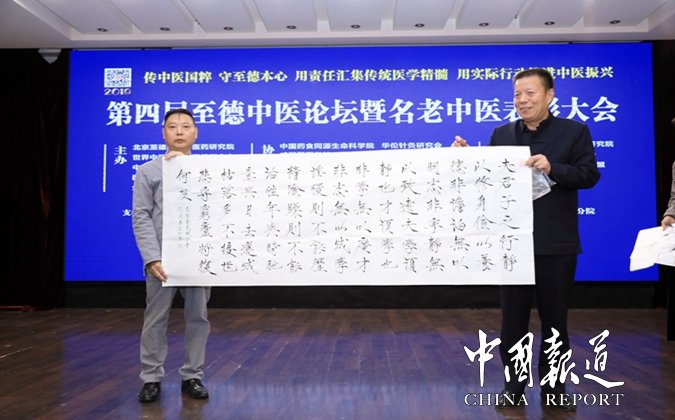 传中医国粹 守至德本心 用责任汇集传统医学精髓 用实际行动 进中医振兴
2019
第四届至德中医论坛暨名老中医表彰大会
主办
北京至德 医药研究院
世界中
协
中国药食同源生命科学院 华佗针灸研究会
研究院
盟
支
分院
夫君子之行静
以修身俭以養
德非澹泊無以
明志非寧静無
以致遠夫學須
静也才須學也
非學無以廣才
非志無以成學
淫慢則不能勵
精險躁則不能
治性年與時馳
意與日去遂成
枯落多不接世
悲守窮廬將復
何及
中國報道
CHINA REPORT